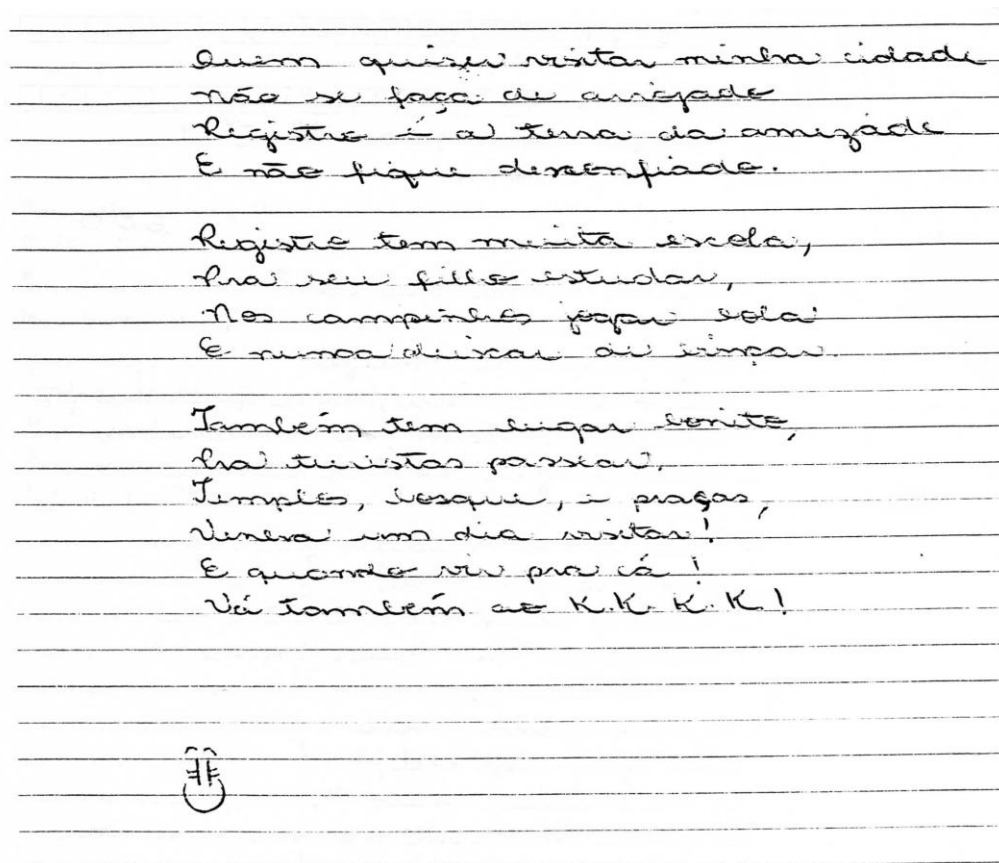 Quem quiser visitar minha cidade
Não se faça de arrojado
Registro é a terra da amizade
E não fique desconfiado.
Registro tem muita escola,
Pra seu filho estudar,
Nos campinhos jogar bola
E nunca deixar de brincar.
Também tem lugar bonito,
Pra turistas passear,
Templos, bosque, e praças,
Venha um dia visitar!
E quando vir pra cá!
Vá também ao K.K.K.K!